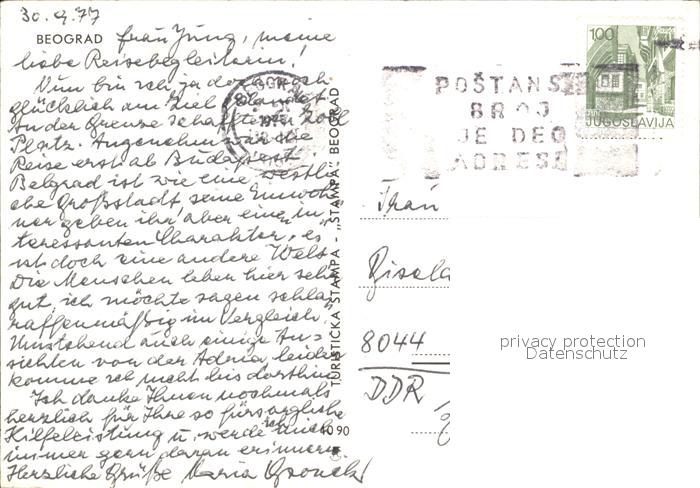 30.9.77
BEOGRAD Frau Jung, meine
liebe Reisebegleiterin!
Nun bin ich ja doch noch
glücklich am Ziel gelandet.
An der Grenze schaffte der Zoll
Platz. Angenehm war die
Reise erst ab Budapest.
Belgrad ist wie eine westli-
che Großstadt, seine Einwoh-
ner geben ihr aber einen in-
teressanten Charakter, es
ist doch eine andere Welt.
Die Menschen leben hier sehr
gut, ich möchte sagen schla-
raffenmäßig im Vergleich.
Umstehend auch einige An-
sichten von der Adria, leider
komme ich nicht bis dorthin.
Ich danke Ihnen nochmals
herzlich für Ihre so fürsorgliche
Hilfeleistung u. werde mich
immer gern daran erinnern.
Herzliche Grüße Maria
TURISTIČKA ŠTAMPA - „ŠTAMPA" BEOGRAD
1090
POŠTANS
BROJ
JE DEO
ADRESE
100
JUGOSLAVIJA
Frau
Gisela
8044
DDR
privacy protection
Datenschutz